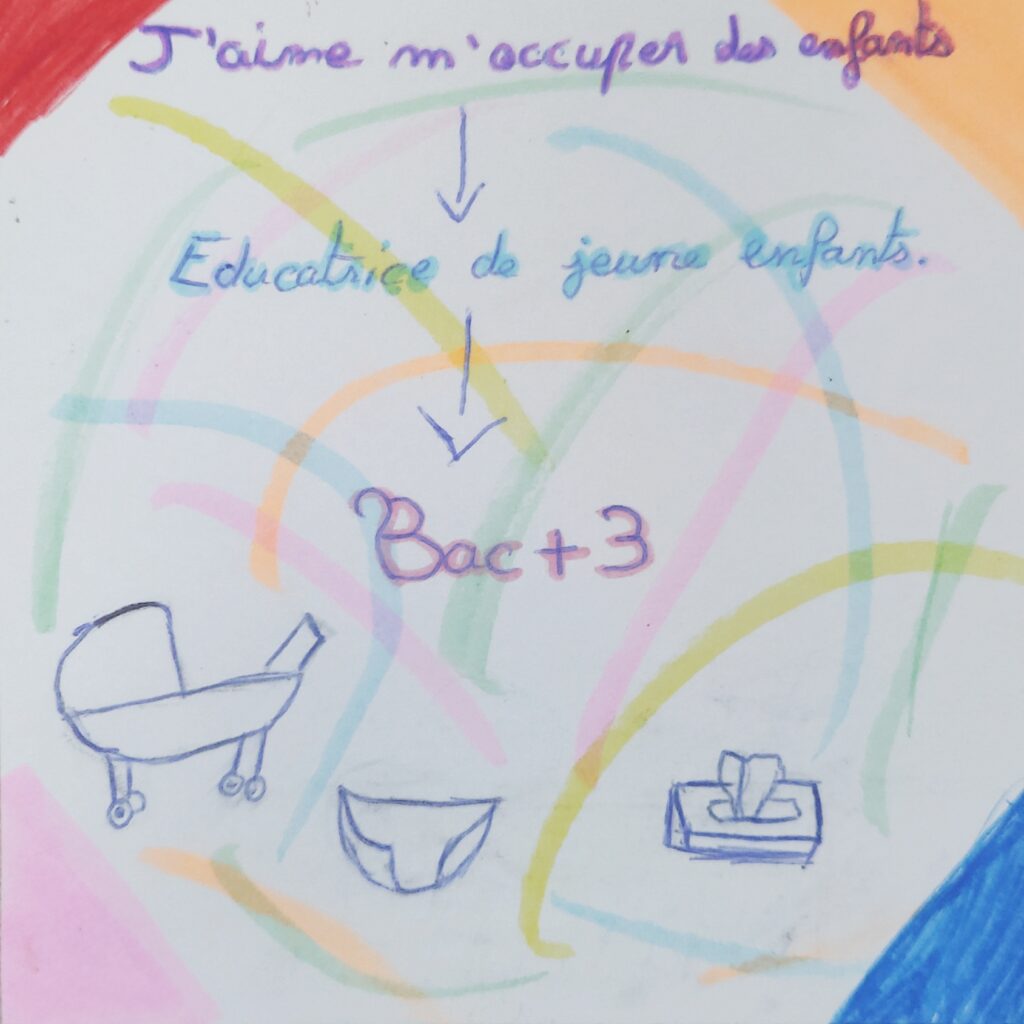 J'aime m'occuper des enfants
Educatrice de jeune enfants.
Bac+3